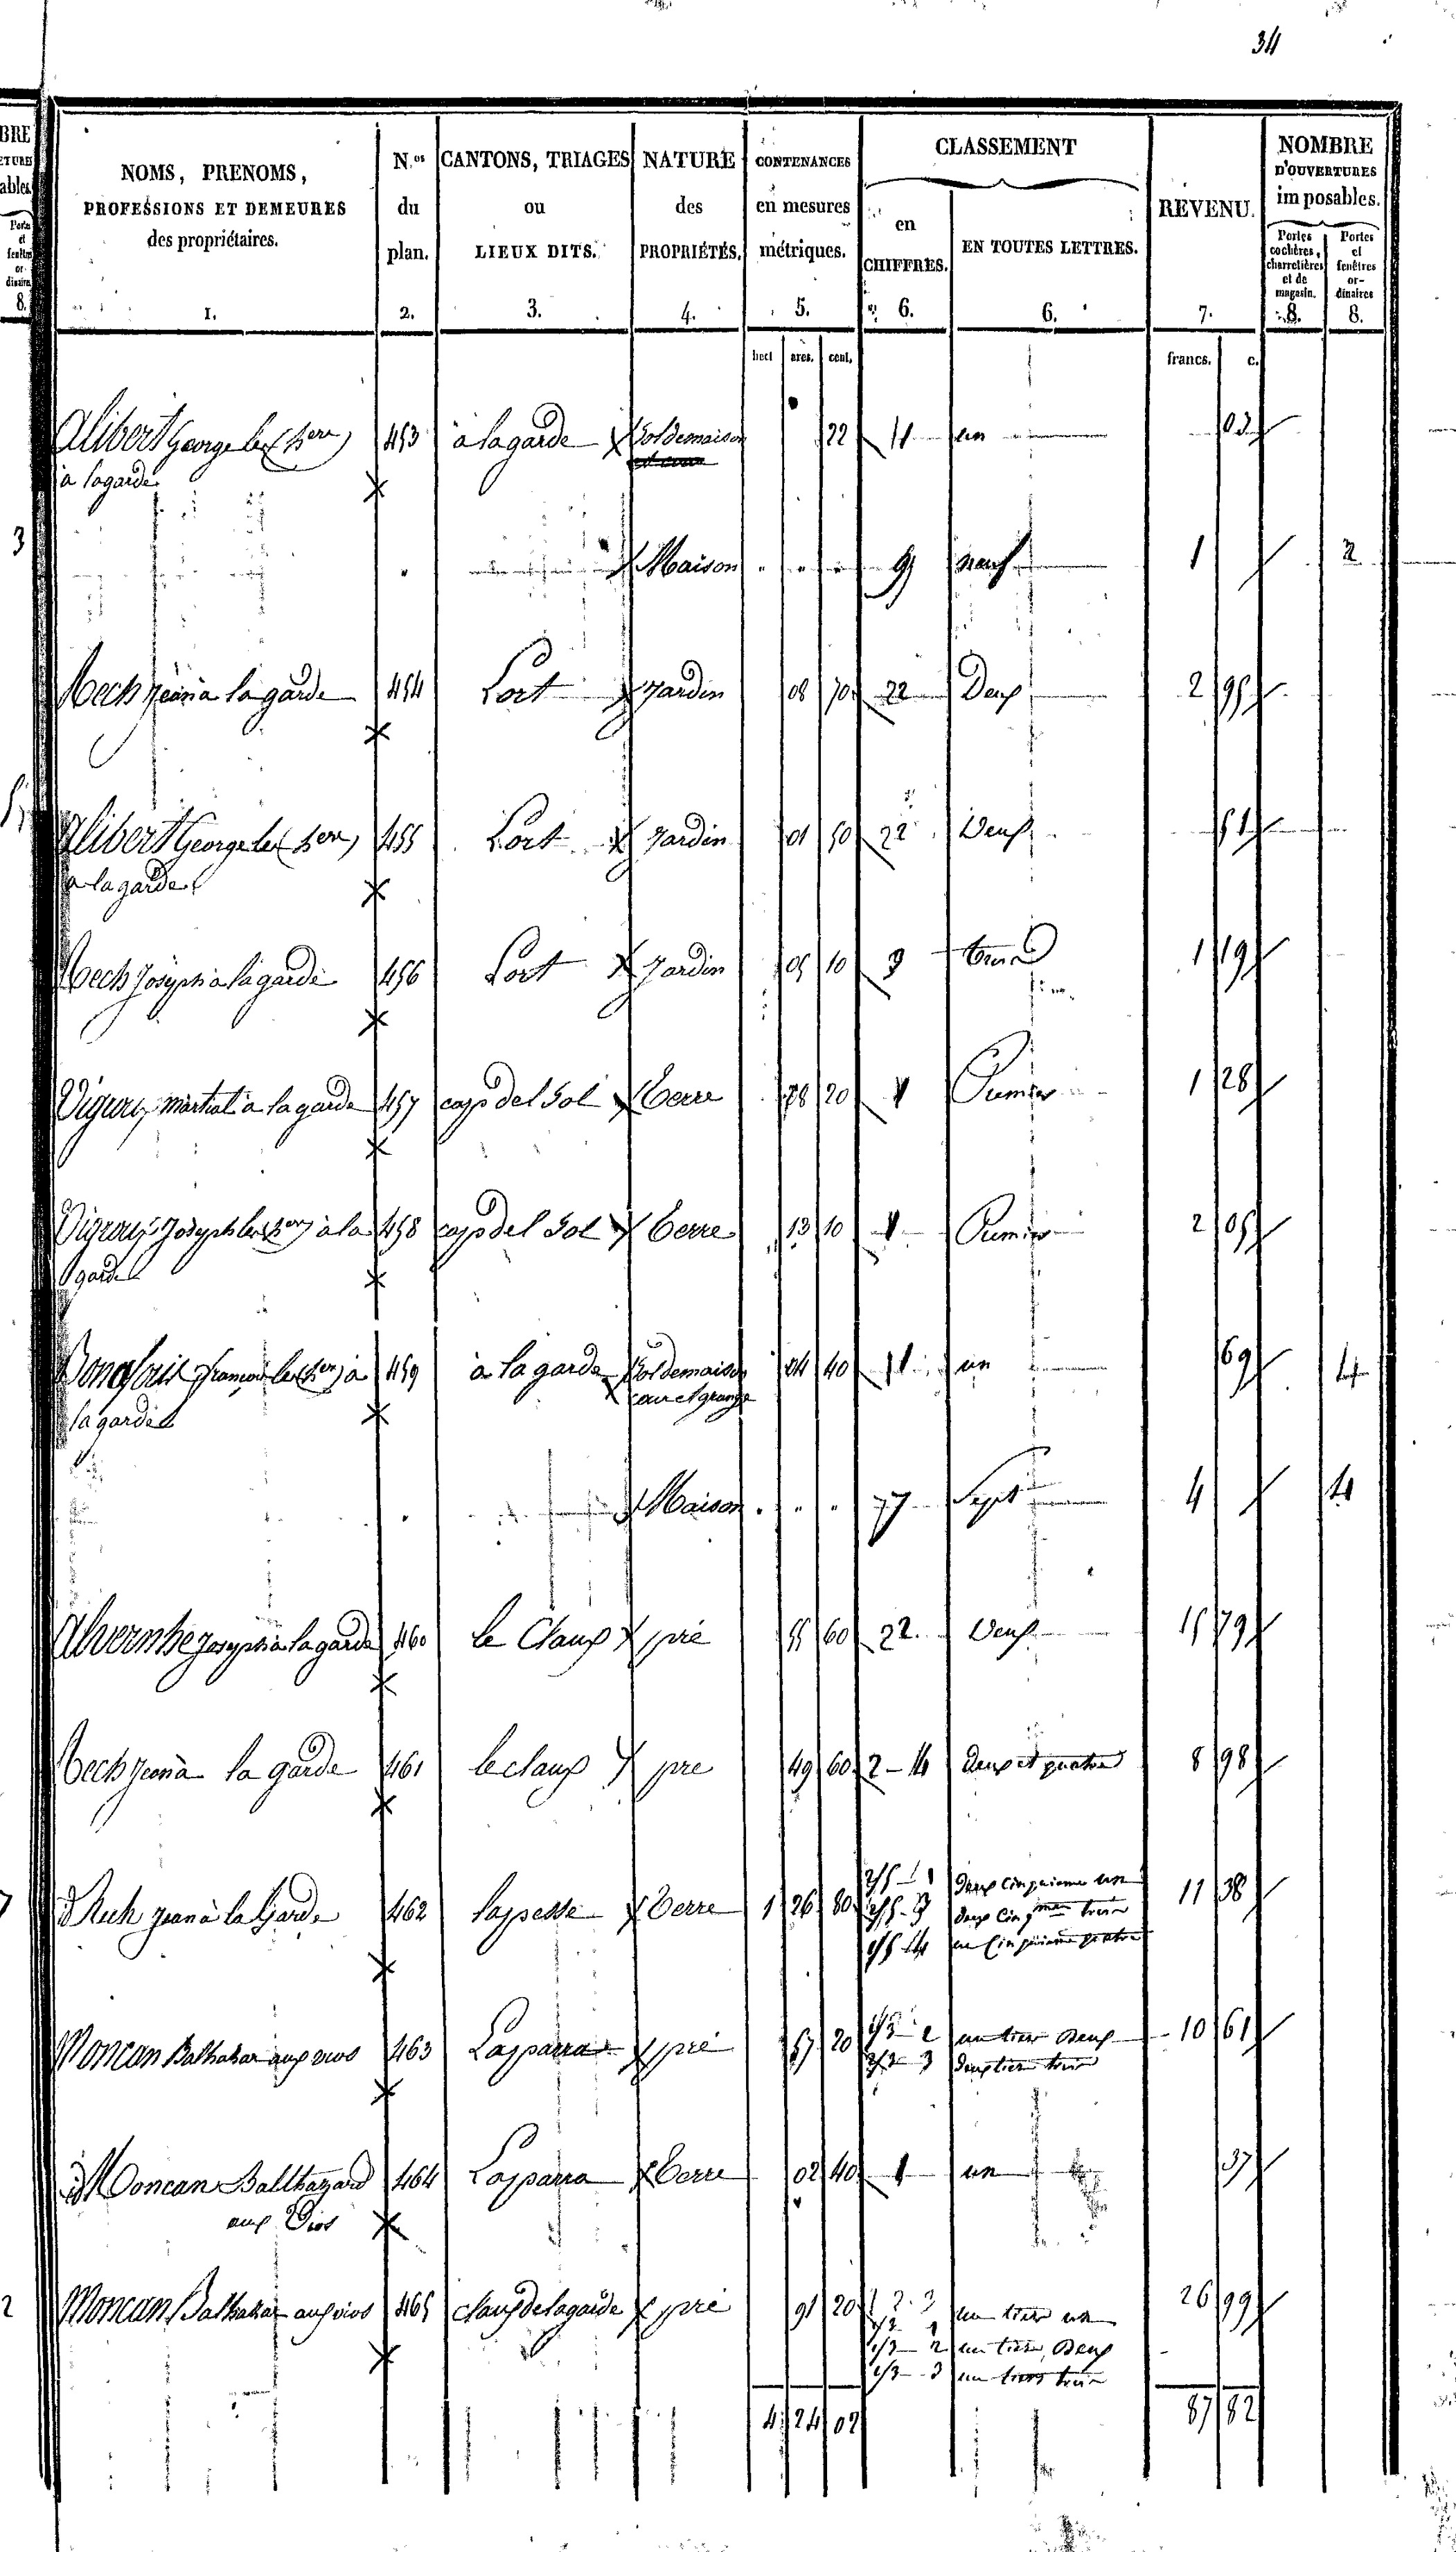 34
NOMS, PRENOMS, PROFESSIONS ET DEMEURES des propriétaires. 1.
N.os du plan. 2.
CANTONS, TRIAGES ou LIEUX DITS. 3.
NATURE des PROPRIÉTÉS. 4.
CONTENANCES en mesures métriques. 5.
CLASSEMENT
en CHIFFRES. 6.
EN TOUTES LETTRES. 6.
REVENU. 7.
NOMBRE D'OUVERTURES imposables.
Portes cochères, charretières et de magasin. 8.
Portes et fenêtres ordinaires 8.
hect ares. cent. francs. c.
Alibert George 453 à la garde Sol de maison 22 1 un 03
à la garde
Maison 9 neuf 1 2
jean à la garde 454 Lort Jardin 08 70 2 Deux 2 95
Alibert George 455 Lort Jardin 01 50 2 Deux 51
à la garde
Joseph à la garde 456 Lort Jardin 05 10 3 trois 1 19
martial à la garde 457 cap del Sol terre 20 1 Premier 1 28
Joseph à la 458 cap del Sol terre 13 10 1 Premier 2 05
garde
françois à 459 à la garde Sol de maison 04 40 1 un 69
la garde cour et grange
Maison 7 Sept 4 4
Alvernhe Joseph à la garde 460 le Claux pré 55 60 2 Deux 15 79
jean à la garde 461 le claux pré 49 60 2-4 deux et quatre 8 98
jean à la Garde 462 terre 1 26 80 2/5-1 deux cinquieme un 11 38
2/5-3 deux cinqmes trois
1/5-4 un cinquieme quatre
Moncan Balthazar aux vios 463 Lasparra pré 57 20 1/3 2 un tiers deux 10 61
2/3 3 deux tiers trois
Moncan Balthazard 464 Lasparra terre 02 40 1 un 37
aux Vios
Moncan Balthazar aux vios 465 claux de lagarde pré 91 20 1/3 1 un tiers un 26 99
1/3-2 un tiers Deux
1/3-3 un tiers trois
4 24 02 87 82